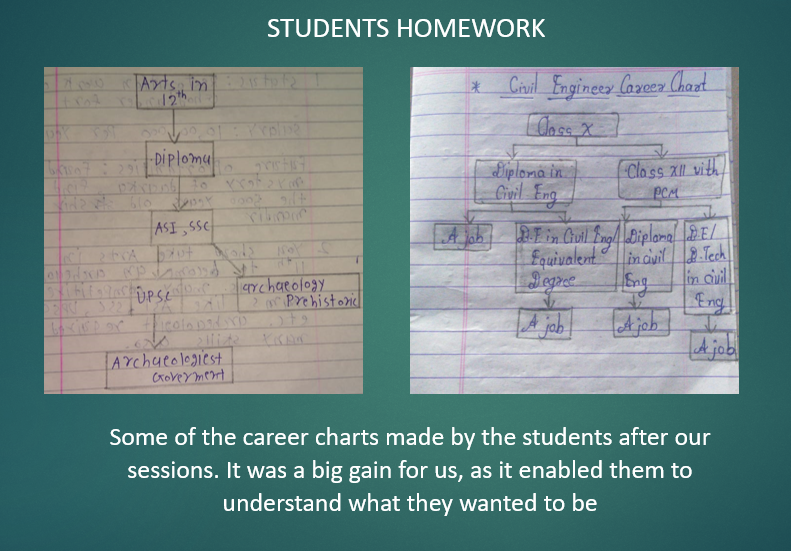 STUDENTS HOMEWORK
Arts in
12th
Diploma
ASI, SSC
UPSC
archaeology
Prehistoric
Archaeologiest
Goverment
* Civil Engineer Career Chart
Class X
Diploma in
Civil Eng
Class XII with
PCM
A job
B.E in Civil Eng/
Equivalent
Degree
Diploma
in civil
Eng
B.E/
B.Tech
in civil
Eng
A job
A job
A job
Some of the career charts made by the students after our
sessions. It was a big gain for us, as it enabled them to
understand what they wanted to be